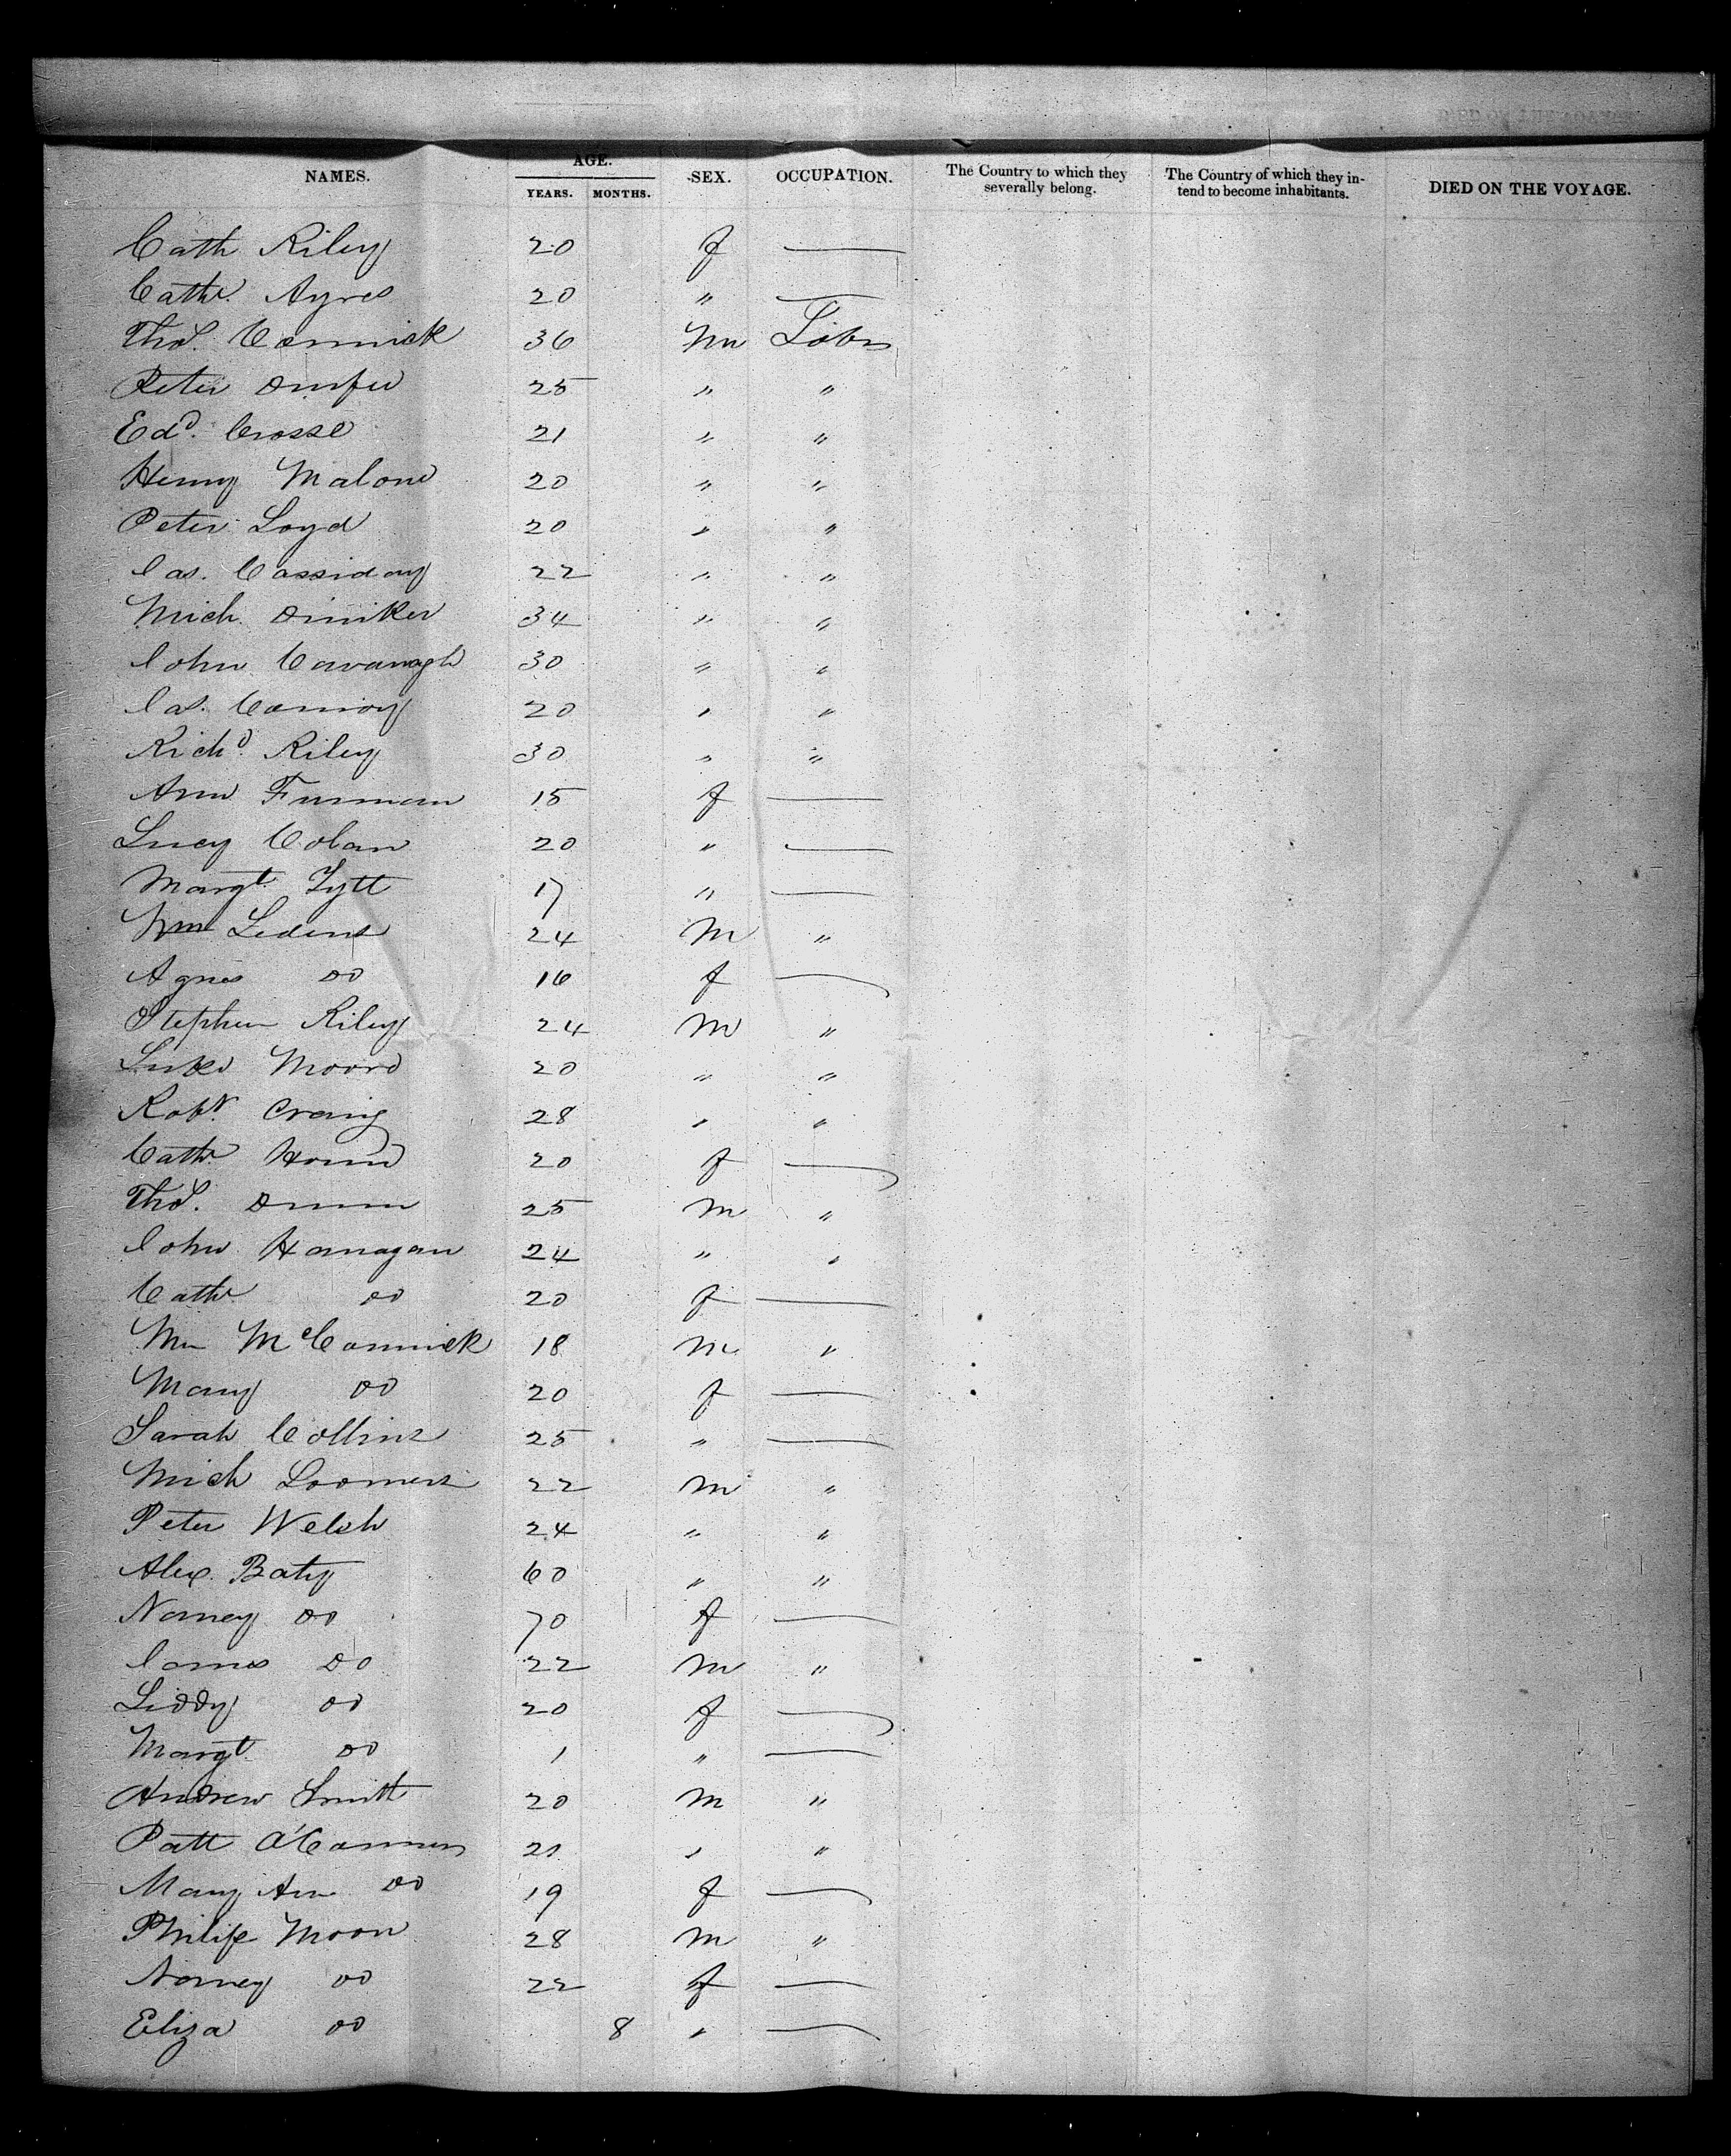 NAMES. AGE. YEARS. MONTHS. SEX. OCCUPATION. The Country to which they severally belong. The Country of which they intend to become inhabitants. DIED ON THE VOYAGE.
Cath Riley 20 f —
Cath. Ayres 20 " —
Thos. Cormick 36 M Labr
Peter 25 " "
Edd. Crosse 21 " "
Henry Malone 20 " "
Peter Loyd 20 " "
Jas. Cassiday 22 " "
Mich. 34 " "
John Cavanagh 30 " "
Jas. Conroy 20 " "
Richd. Riley 30 " "
Ann Furman 15 f —
Lucy Colan 20 " —
Margt. Tytt 17 " —
Wm Ledens 24 M "
Agnes Do 16 f —
Stephen Riley 24 M "
Luke Moore 20 " "
Robt. Craig 28 " "
Cath. 20 f —
Thos. Dunn 25 M "
John Hanagan 24 " "
Cath. Do 20 f —
Wm McCormick 18 M "
Mary Do 20 f —
Sarah Collins 25 " —
Mich 22 M "
Peter Welsh 24 " "
Alex. Baty 60 " "
Nancy Do 70 f —
James Do 22 M "
Liddy Do 20 f —
Margt. Do 1 " —
Andrew Smith 20 M "
Patt O'Connor 21 " "
Mary Ann Do 19 f —
Philip Moon 28 M "
Nancy Do 22 f —
Eliza Do 8 " —